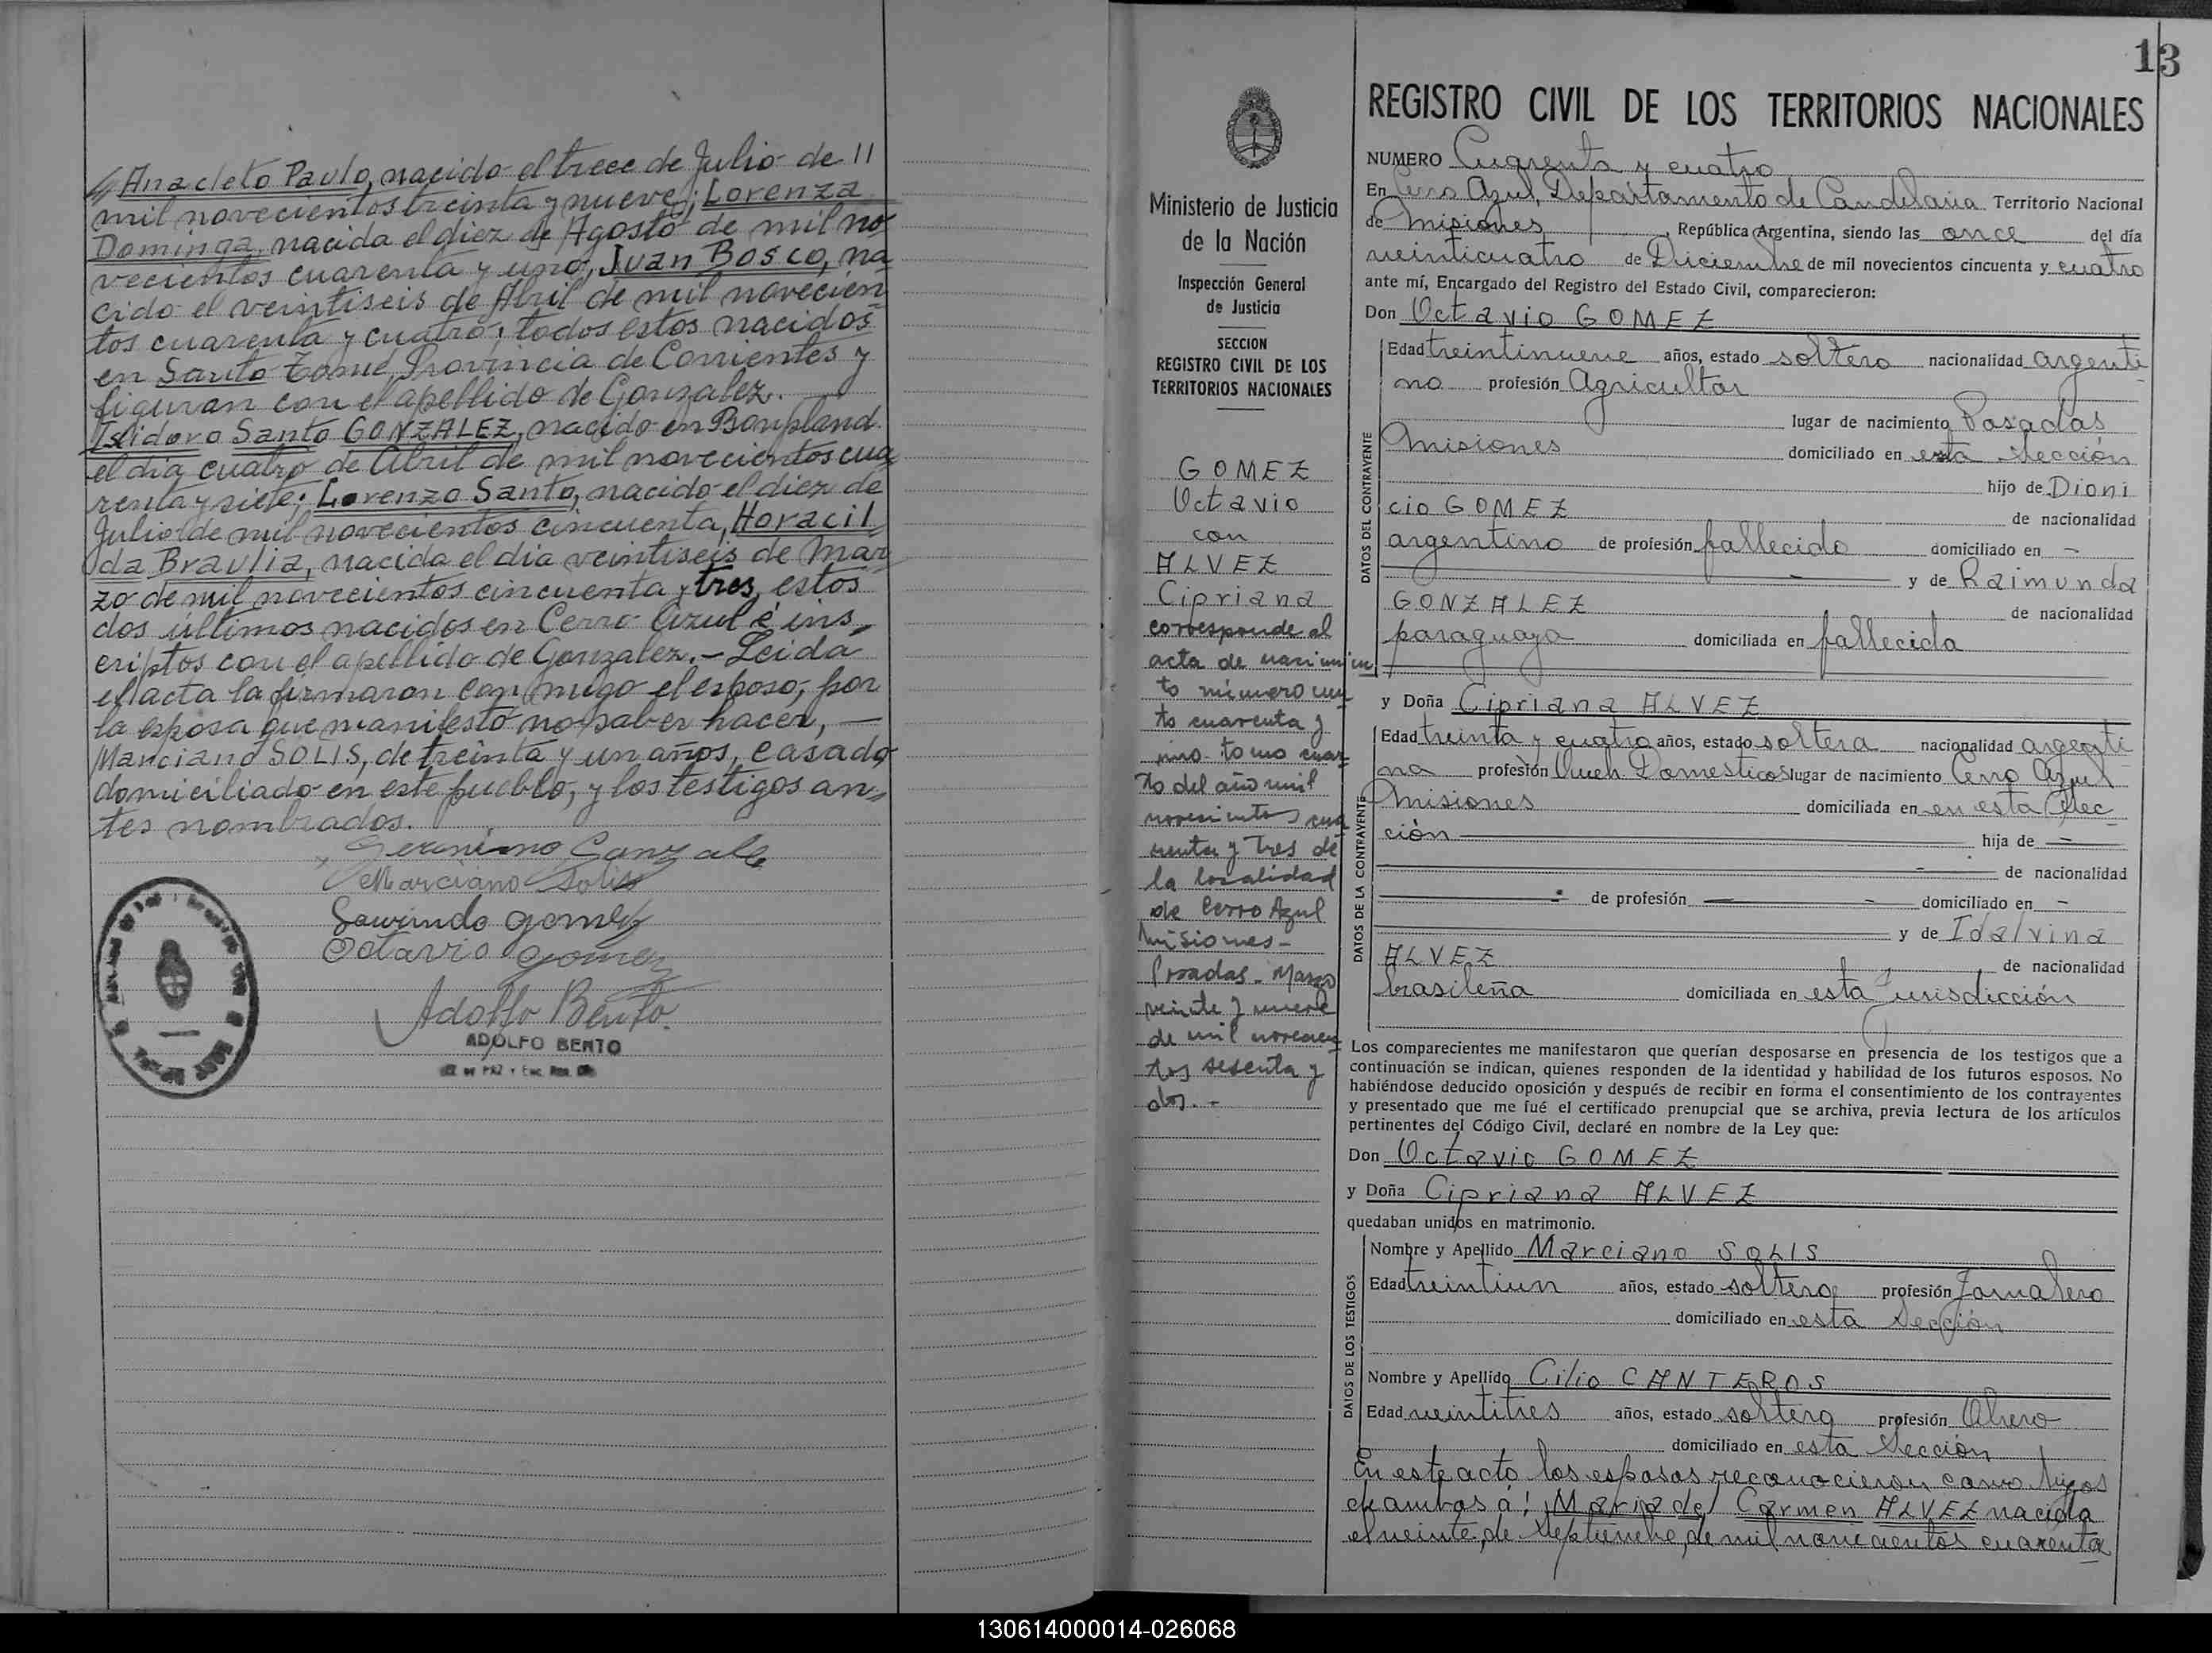 Anacleto Paulo, nacido el trece de Julio de
mil novecientos treinta y nueve; Lorenza
Dominga, nacida el diez de Agosto de mil no
vecientos cuarenta y uno; Juan Bosco, na
cido el veintiseis de Abril de mil novecien
tos cuarenta y cuatro; todos estos nacidos
en Santo Tomé, Provincia de Corrientes y
figuran con el apellido de Gonzalez.
Isidoro Santo GONZALEZ, nacido en Bonpland
el día cuatro de Abril de mil novecientos cua
renta y siete; Lorenzo Santo, nacido el diez de
Julio de mil novecientos cincuenta, Horacil
da Braulia, nacida el día veintiseis de Mar
zo de mil novecientos cincuenta y tres, estos
dos últimos nacidos en Cerro Azul é ins
criptos con el apellido de Gonzalez.- Leida
el acta la firmaron con migo el esposo, por
la esposa que manifestó no saber hacer, —
Marciano SOLIS, de treinta y un años, casado
domiciliado en este pueblo, y los testigos an
tes nombrados.
Gerónimo Gonzalez
Marciano Solis
Gomez
Octavio Gomez
Adolfo Bento
ADOLFO BENTO
13
Ministerio de Justicia
de la Nación
Inspección General
de Justicia
SECCION
REGISTRO CIVIL DE LOS
TERRITORIOS NACIONALES
GOMEZ
Octavio
con
ALVEZ
Cipriana
corresponde al
acta de nacimien
to número cien
to cuarenta y
uno tomo cuar
to del año mil
novecientos cua
renta y tres de
la localidad
de Cerro Azul
Misiones-
Posadas. Marzo
veinte y nueve
de mil novecien
tos sesenta y
dos.-
REGISTRO CIVIL DE LOS TERRITORIOS NACIONALES
NUMERO Cuarenta y cuatro
En Cerro Azul, Departamento de Candelaria Territorio Nacional
de Misiones, República Argentina, siendo las once del día
veinticuatro de Diciembre de mil novecientos cincuenta y cuatro
ante mí, Encargado del Registro del Estado Civil, comparecieron:
Don Octavio GOMEZ
DATOS DEL CONTRAYENTE
Edad treintinueve años, estado soltero nacionalidad argenti
no profesión Agricultor
lugar de nacimiento Posadas
Misiones domiciliado en esta Sección
hijo de Dioni
cio GOMEZ de nacionalidad
argentino de profesión fallecido domiciliado en -
y de Raimunda
GONZALEZ de nacionalidad
paraguaya domiciliada en fallecida
y Doña Cipriana ALVEZ
DATOS DE LA CONTRAYENTE
Edad treinta y cuatro años, estado soltera nacionalidad argenti
na profesión Queh. Domesticos lugar de nacimiento Cerro Azul
Misiones domiciliada en en esta Sec
ción hija de —
de nacionalidad
de profesión — domiciliado en -
y de Idalvina
ALVEZ de nacionalidad
brasileña domiciliada en esta Jurisdicción
Los comparecientes me manifestaron que querían desposarse en presencia de los testigos que a
continuación se indican, quienes responden de la identidad y habilidad de los futuros esposos. No
habiéndose deducido oposición y después de recibir en forma el consentimiento de los contrayentes
y presentado que me fué el certificado prenupcial que se archiva, previa lectura de los artículos
pertinentes del Código Civil, declaré en nombre de la Ley que:
Don Octavio GOMEZ
y Doña Cipriana ALVEZ
quedaban unidos en matrimonio.
DATOS DE LOS TESTIGOS
Nombre y Apellido Marciano SOLIS
Edad treintiun años, estado soltero profesión Jornalero
domiciliado en esta Sección
Nombre y Apellido Cilio CANTEROS
Edad veintitres años, estado soltero profesión Obrero
domiciliado en esta Sección
En este acto los esposos reconocieron como hijos
de ambos á: Maria del Carmen ALVEZ nacida
el veinte de Septiembre de mil novecientos cuarenta
130614000014-026068